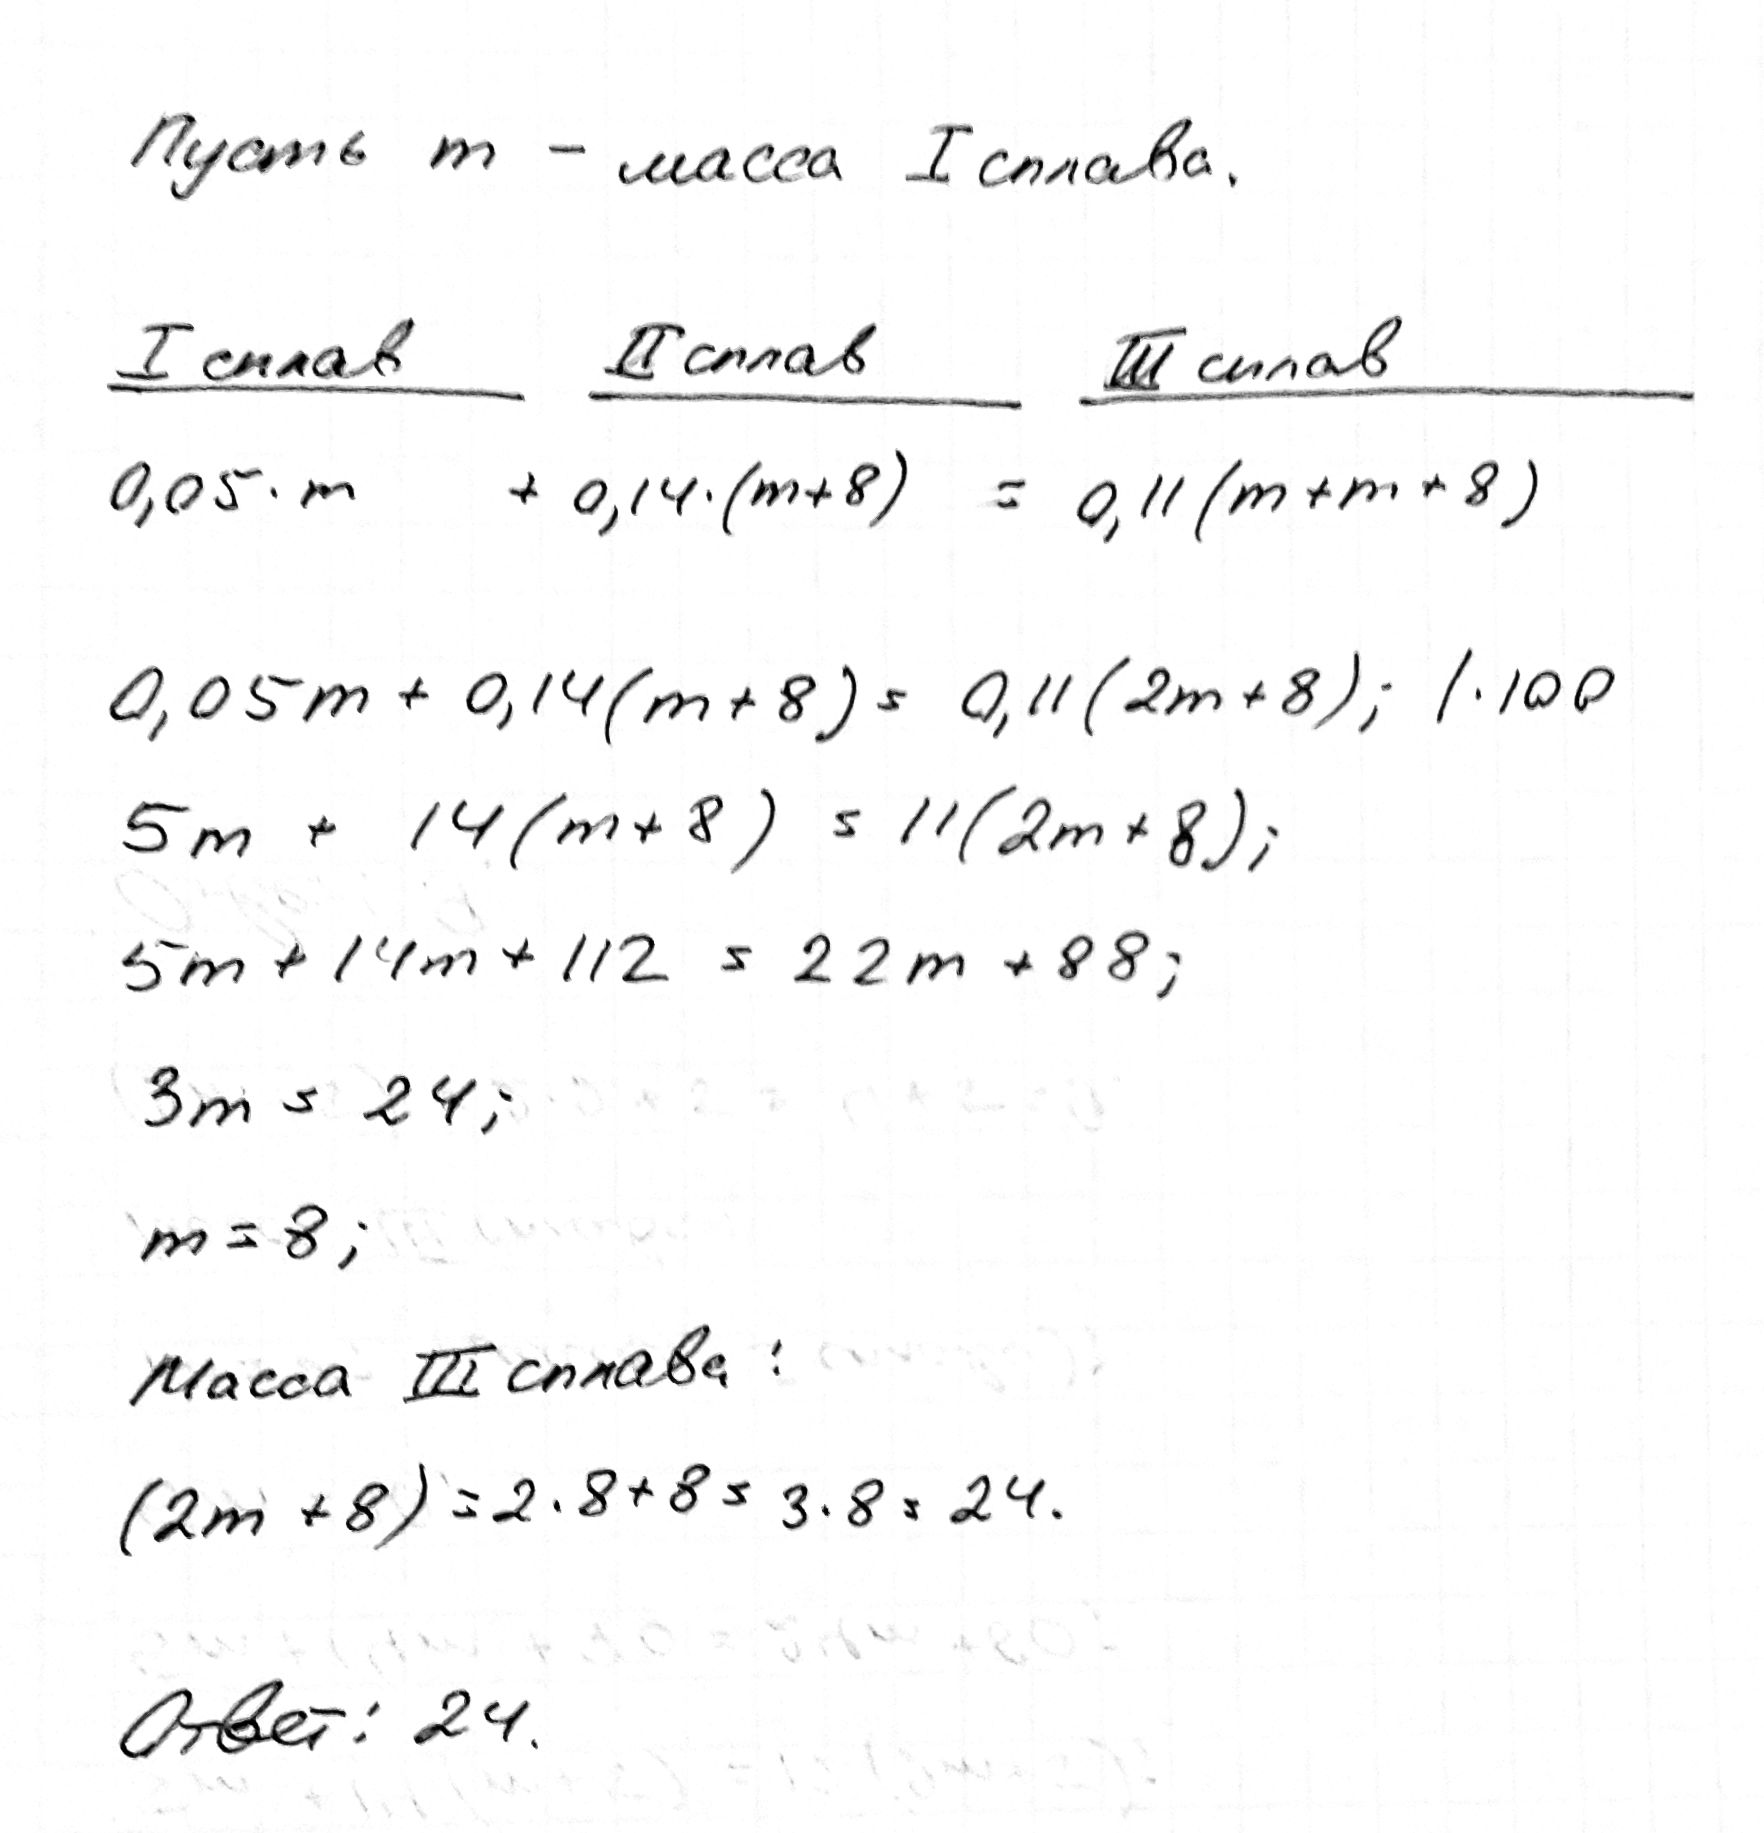 Пусть m - масса I сплава.
I сплав II сплав III сплав
0,05·m + 0,14·(m+8) = 0,11(m+m+8)
0,05m + 0,14(m+8) = 0,11(2m+8); /·100
5m + 14(m+8) = 11(2m+8);
5m + 14m + 112 = 22m + 88;
3m = 24;
m = 8;
Масса III сплава:
(2m+8) = 2·8+8 = 3·8 = 24.
Ответ: 24.